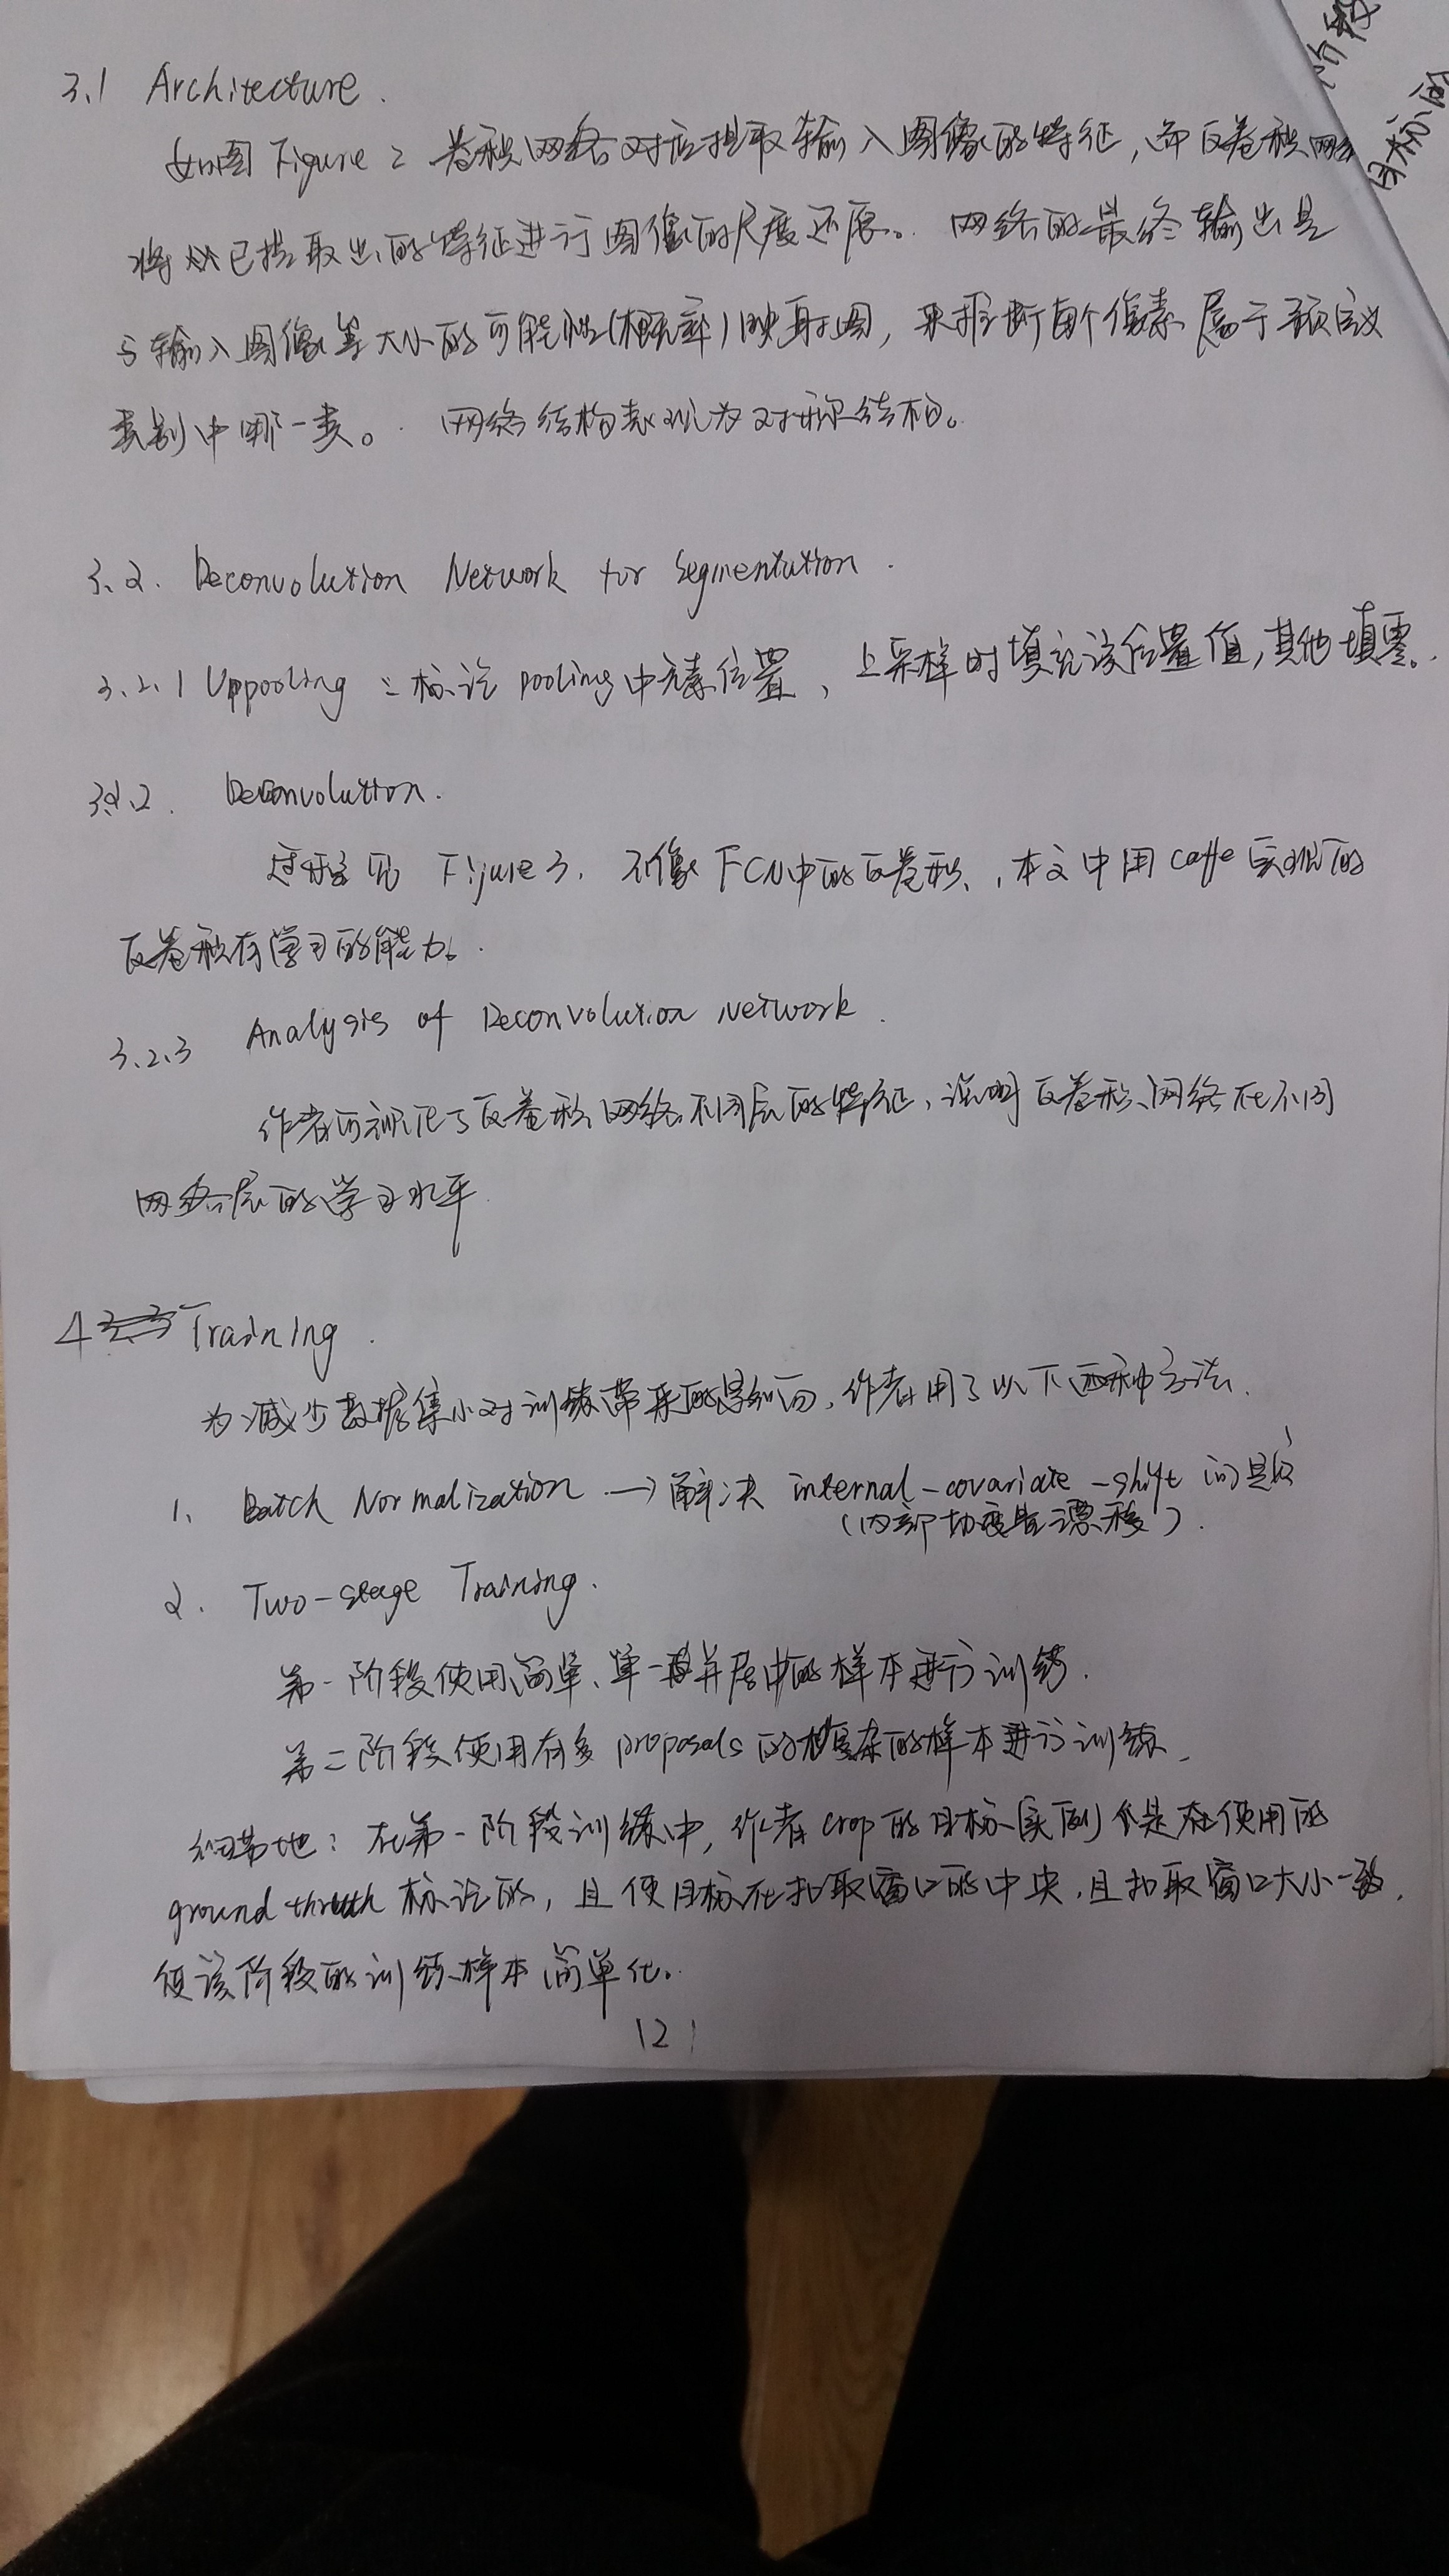 3.1 Architecture.
如图 Figure 2 卷积网络对应提取输入图像的特征，而反卷积网络
将已提取出的特征进行图像的尺度还原。网络的最终输出是
与输入图像等大小的可能性(概率)映射图，来推断每个像素属于预定义
类别中哪一类。网络结构表现为对称结构。
3.2. Deconvolution Network for Segmentation.
3.2.1 Uppooling：标记pooling中元素位置，上采样时填充该位置值，其他填零。
3.2.2. Deconvolution.
过程见 Figure 3. 不像FCN中的反卷积，本文中用caffe实现的
反卷积有学习的能力。
3.2.3 Analysis of Deconvolution Network.
作者可视化了反卷积网络不同层的特征，说明反卷积网络在不同
网络层的学习水平
4 Training.
为减少数据集小对训练带来的影响，作者用了以下两种方法.
1. Batch Normalization → 解决 internal-covariate-shift 问题
(内部协变量漂移).
2. Two-stage Training.
第一阶段使用简单、单一并居中的样本进行训练.
第二阶段使用有多proposals的复杂的样本进行训练.
细节地：在第一阶段训练中，作者crop的目标实例是在使用的
ground thruth 标记的，且使目标在扣取窗口的中央，且扣取窗口大小一致，
使该阶段的训练样本简单化。
12
阶段
目标的